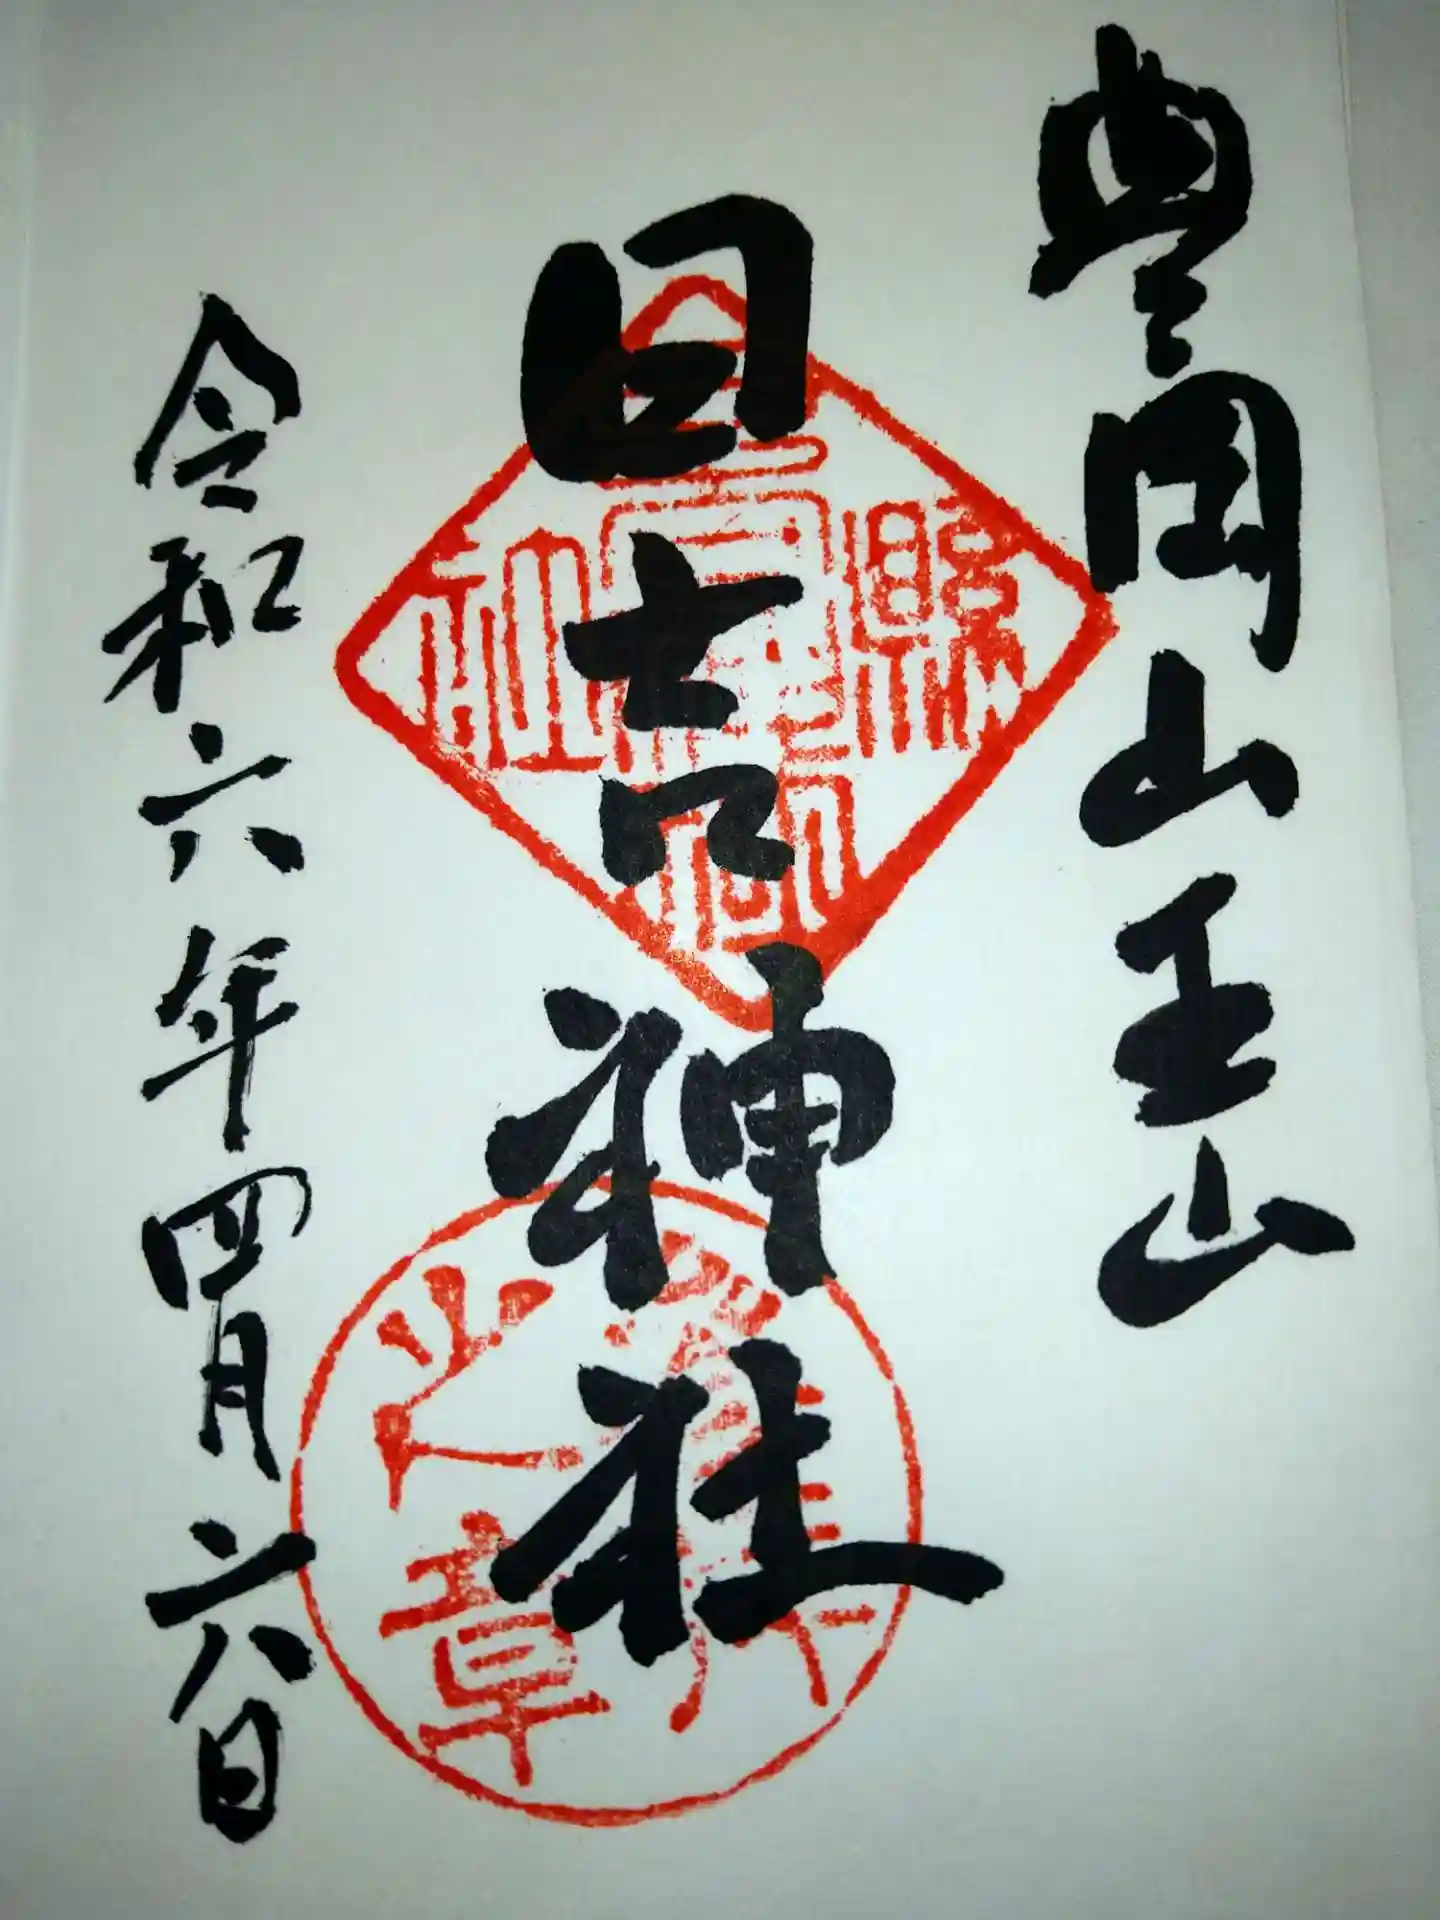 豊岡山王山
日吉神社
令和六年四月六日
之章